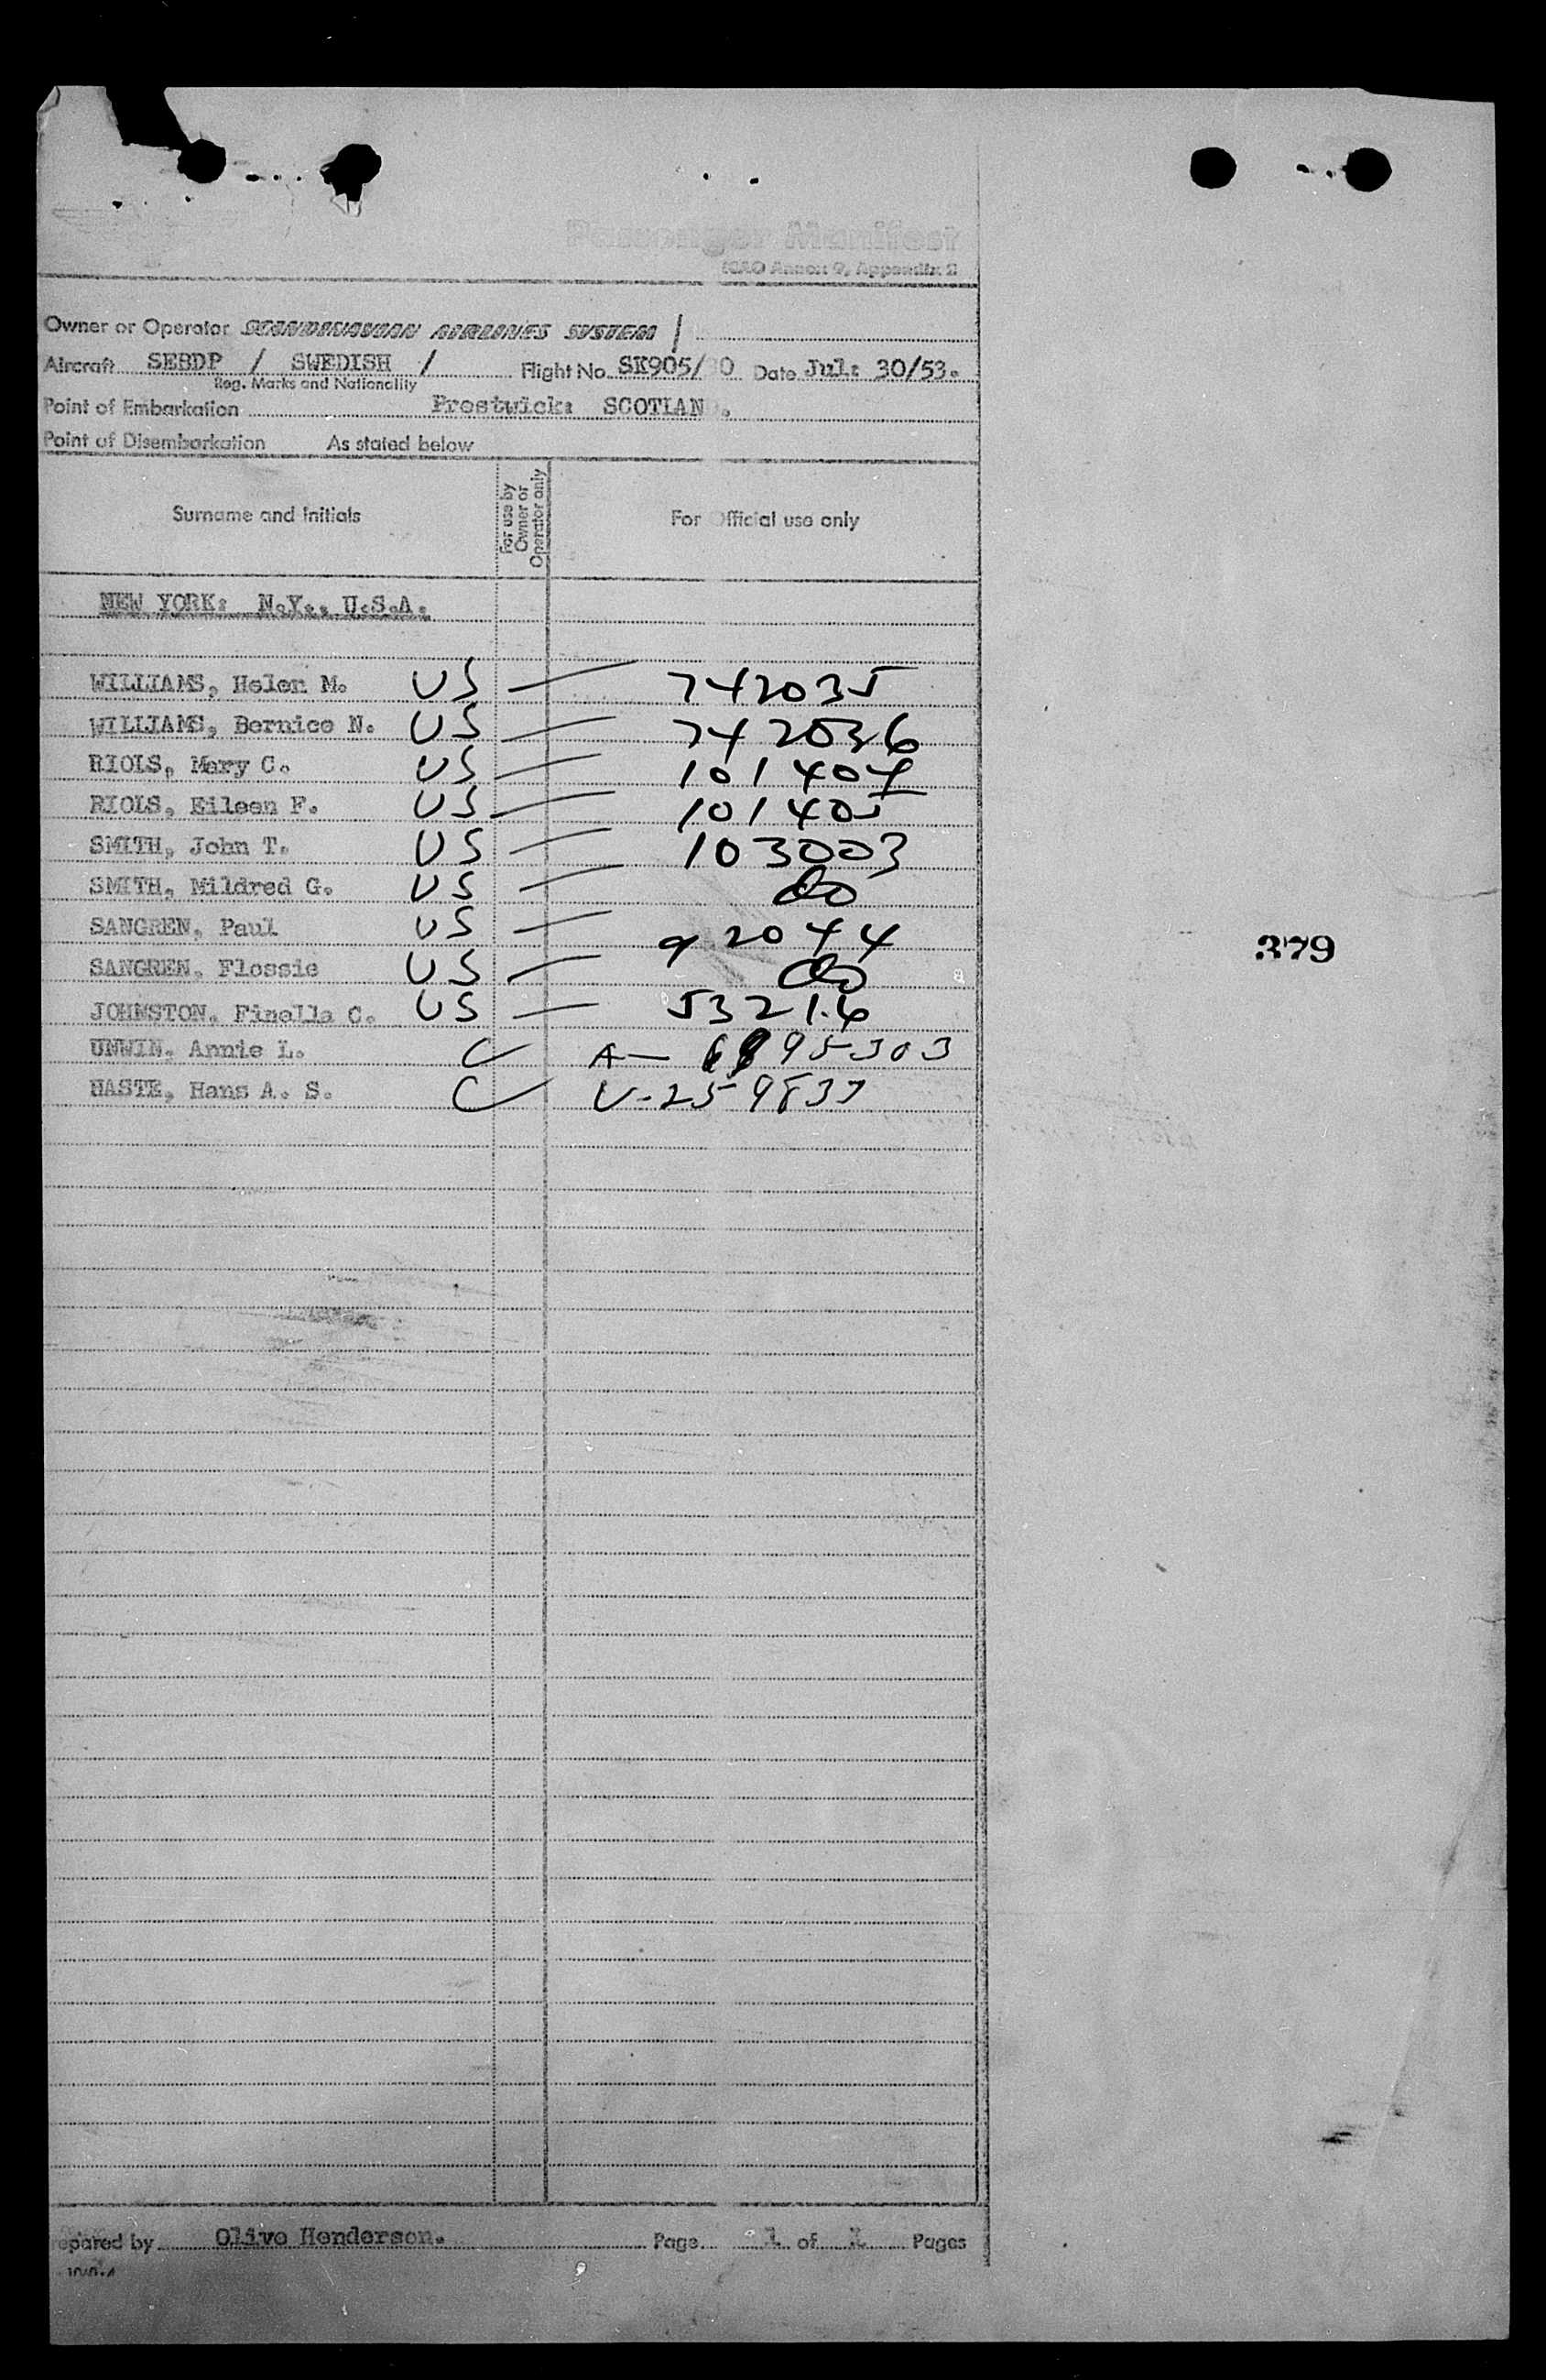 Passenger Manifest
ICAO Annex 9, Appendix 2
Owner or Operator SCANDINAVIAN AIRLINES SYSTEM /
Aircraft SEBDP / SWEDISH / Flight No. SK905/30 Date Jul: 30/53.
Reg. Marks and Nationality
Point of Embarkation Prestwick: SCOTLAND.
Point of Disembarkation As stated below
Surname and Initials For use by Owner or Operator only For Official use only
NEW YORK: N.Y., U.S.A.
WILLIAMS, Helen M. US — 742035
WILLIAMS, Bernice N. US — 742036
RIOLS, Mary C. US — 101404
RIOLS, Eileen F. US — 101405
SMITH, John T. US — 103003
SMITH, Mildred G. US — do
SANGREN, Paul US — 92044
SANGREN, Flossie US — do
379
JOHNSTON, Finella C. US — 53216
UNWIN, Annie L. A— 95303
HASTE, Hans A. S. V-259837
Prepared by Olive Henderson. Page 1 of 1 Pages